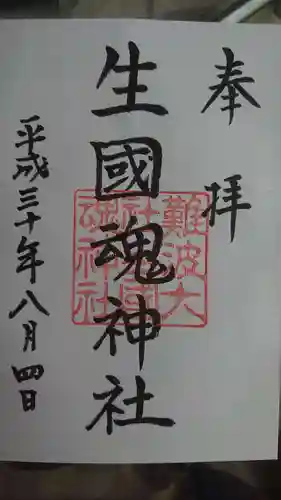 奉拝
生國魂神社
平成三十年八月四日
難波大
社生國
魂神社